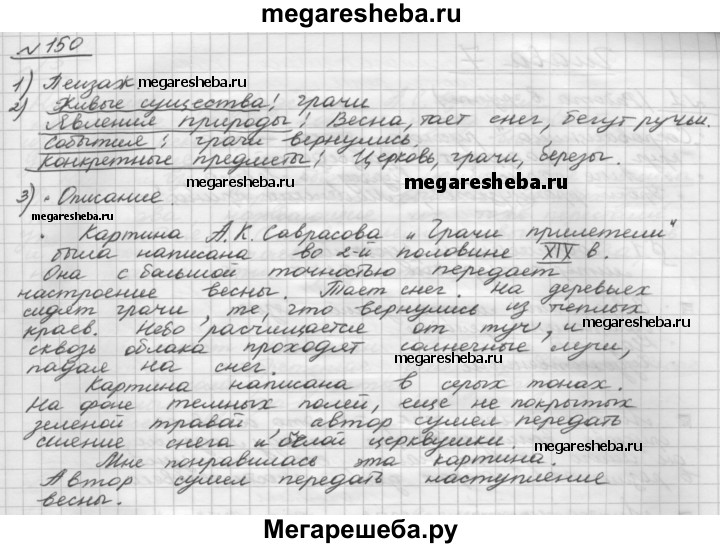 megaresheba.ru
№150
1) Пейзаж megaresheba.ru
2) Живые существа: грачи
Явления природы: Весна, тает снег, бегут ручьи.
События: грачи вернулись.
Конкретные предметы: Церковь, грачи, березы.
megaresheba.ru
3) • Описание.
megaresheba.ru
• Картина А.К. Саврасова „Грачи прилетели"
была написана во 2-й половине XIX в.
Она с большой точностью передает
настроение весны. Тает снег. На деревьях
сидят грачи, те, что вернулись из теплых
краев. Небо расчищается от туч, и megaresheba.ru
сквозь облака проходят солнечные лучи,
падая на снег. megaresheba.ru
Картина написана в серых тонах.
На фоне темных полей, еще не покрытых
зеленой травой, автор сумел передать
сияние снега и белой церквушки. megaresheba.ru
Мне понравилась эта картина.
Автор сумел передать наступление
весны.
Мегарешеба.ру